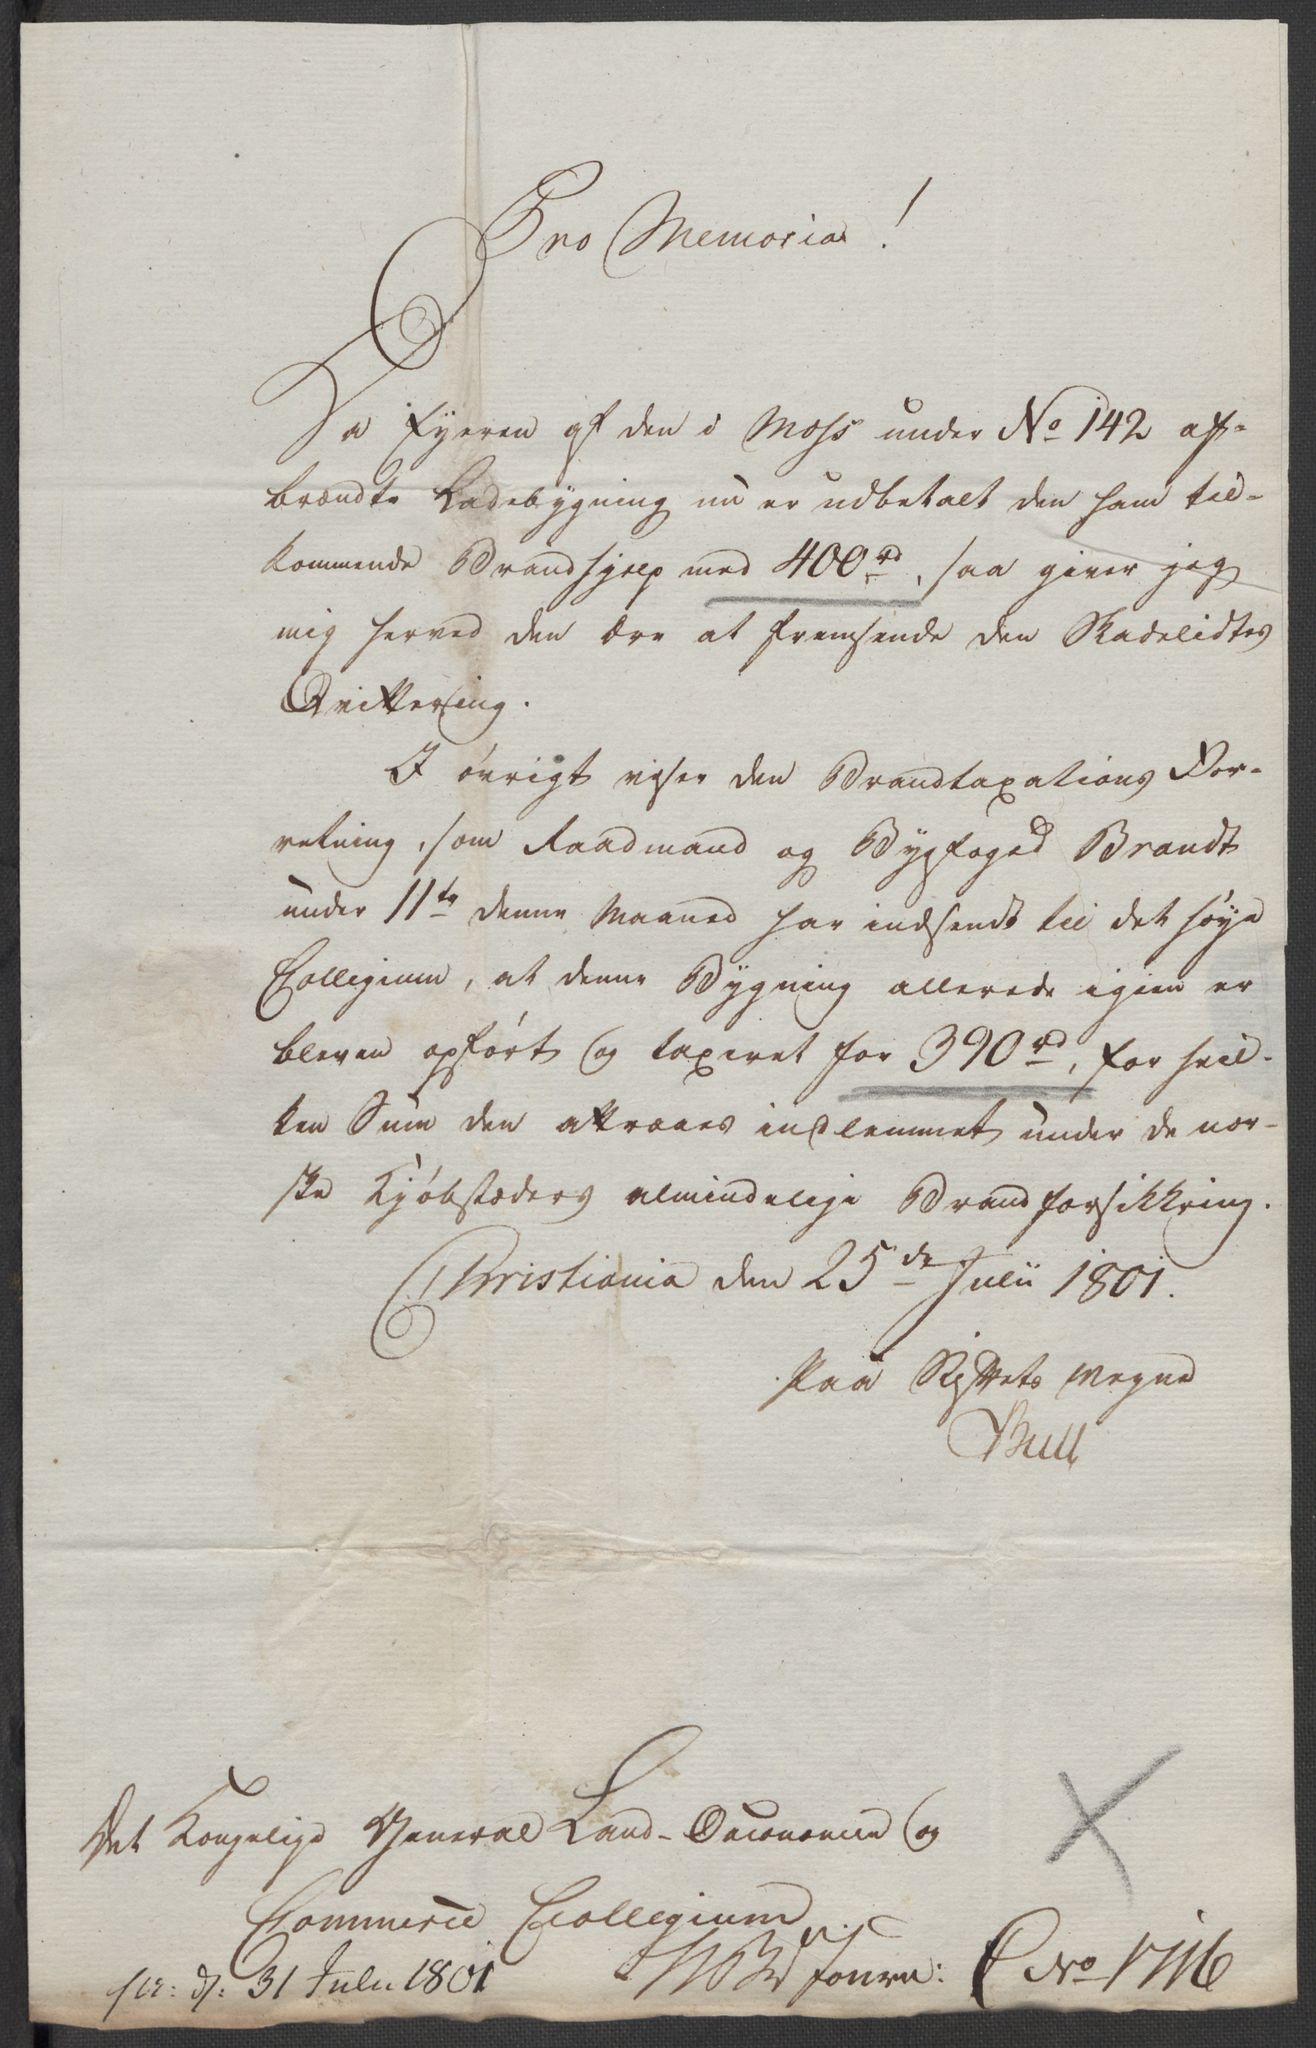 Pro Memoria!
Da Eyeren af den i Moss under No 142 af-
brændte Ladebygning nu er udbetalt den ham til-
kommende Brandhjelp med 400 rd, saa giver jeg
mig herved den Ære at fremsende den Skadelidtes
Qvittering.
I øvrigt viser den Brandtaxations For-
retning, som Raadmand og Byefoged Brandt
under 11te denne Maaned har indsendt til det høye
Collegium, at denne Bygning allerede igien er
bleven opført og taxeret for 390 rd, for hvil-
ken Sum den attraaes indlemmet under de nor-
ske Kjøbstæders almindelige Brandforsikkring.
Christiania den 25de Julii 1801.
Paa Stiftets Vegne
Bull
Det Kongelige General Land-Oeconomie og
Commerce Collegium
31 Julii 1801
Journ: No 1716